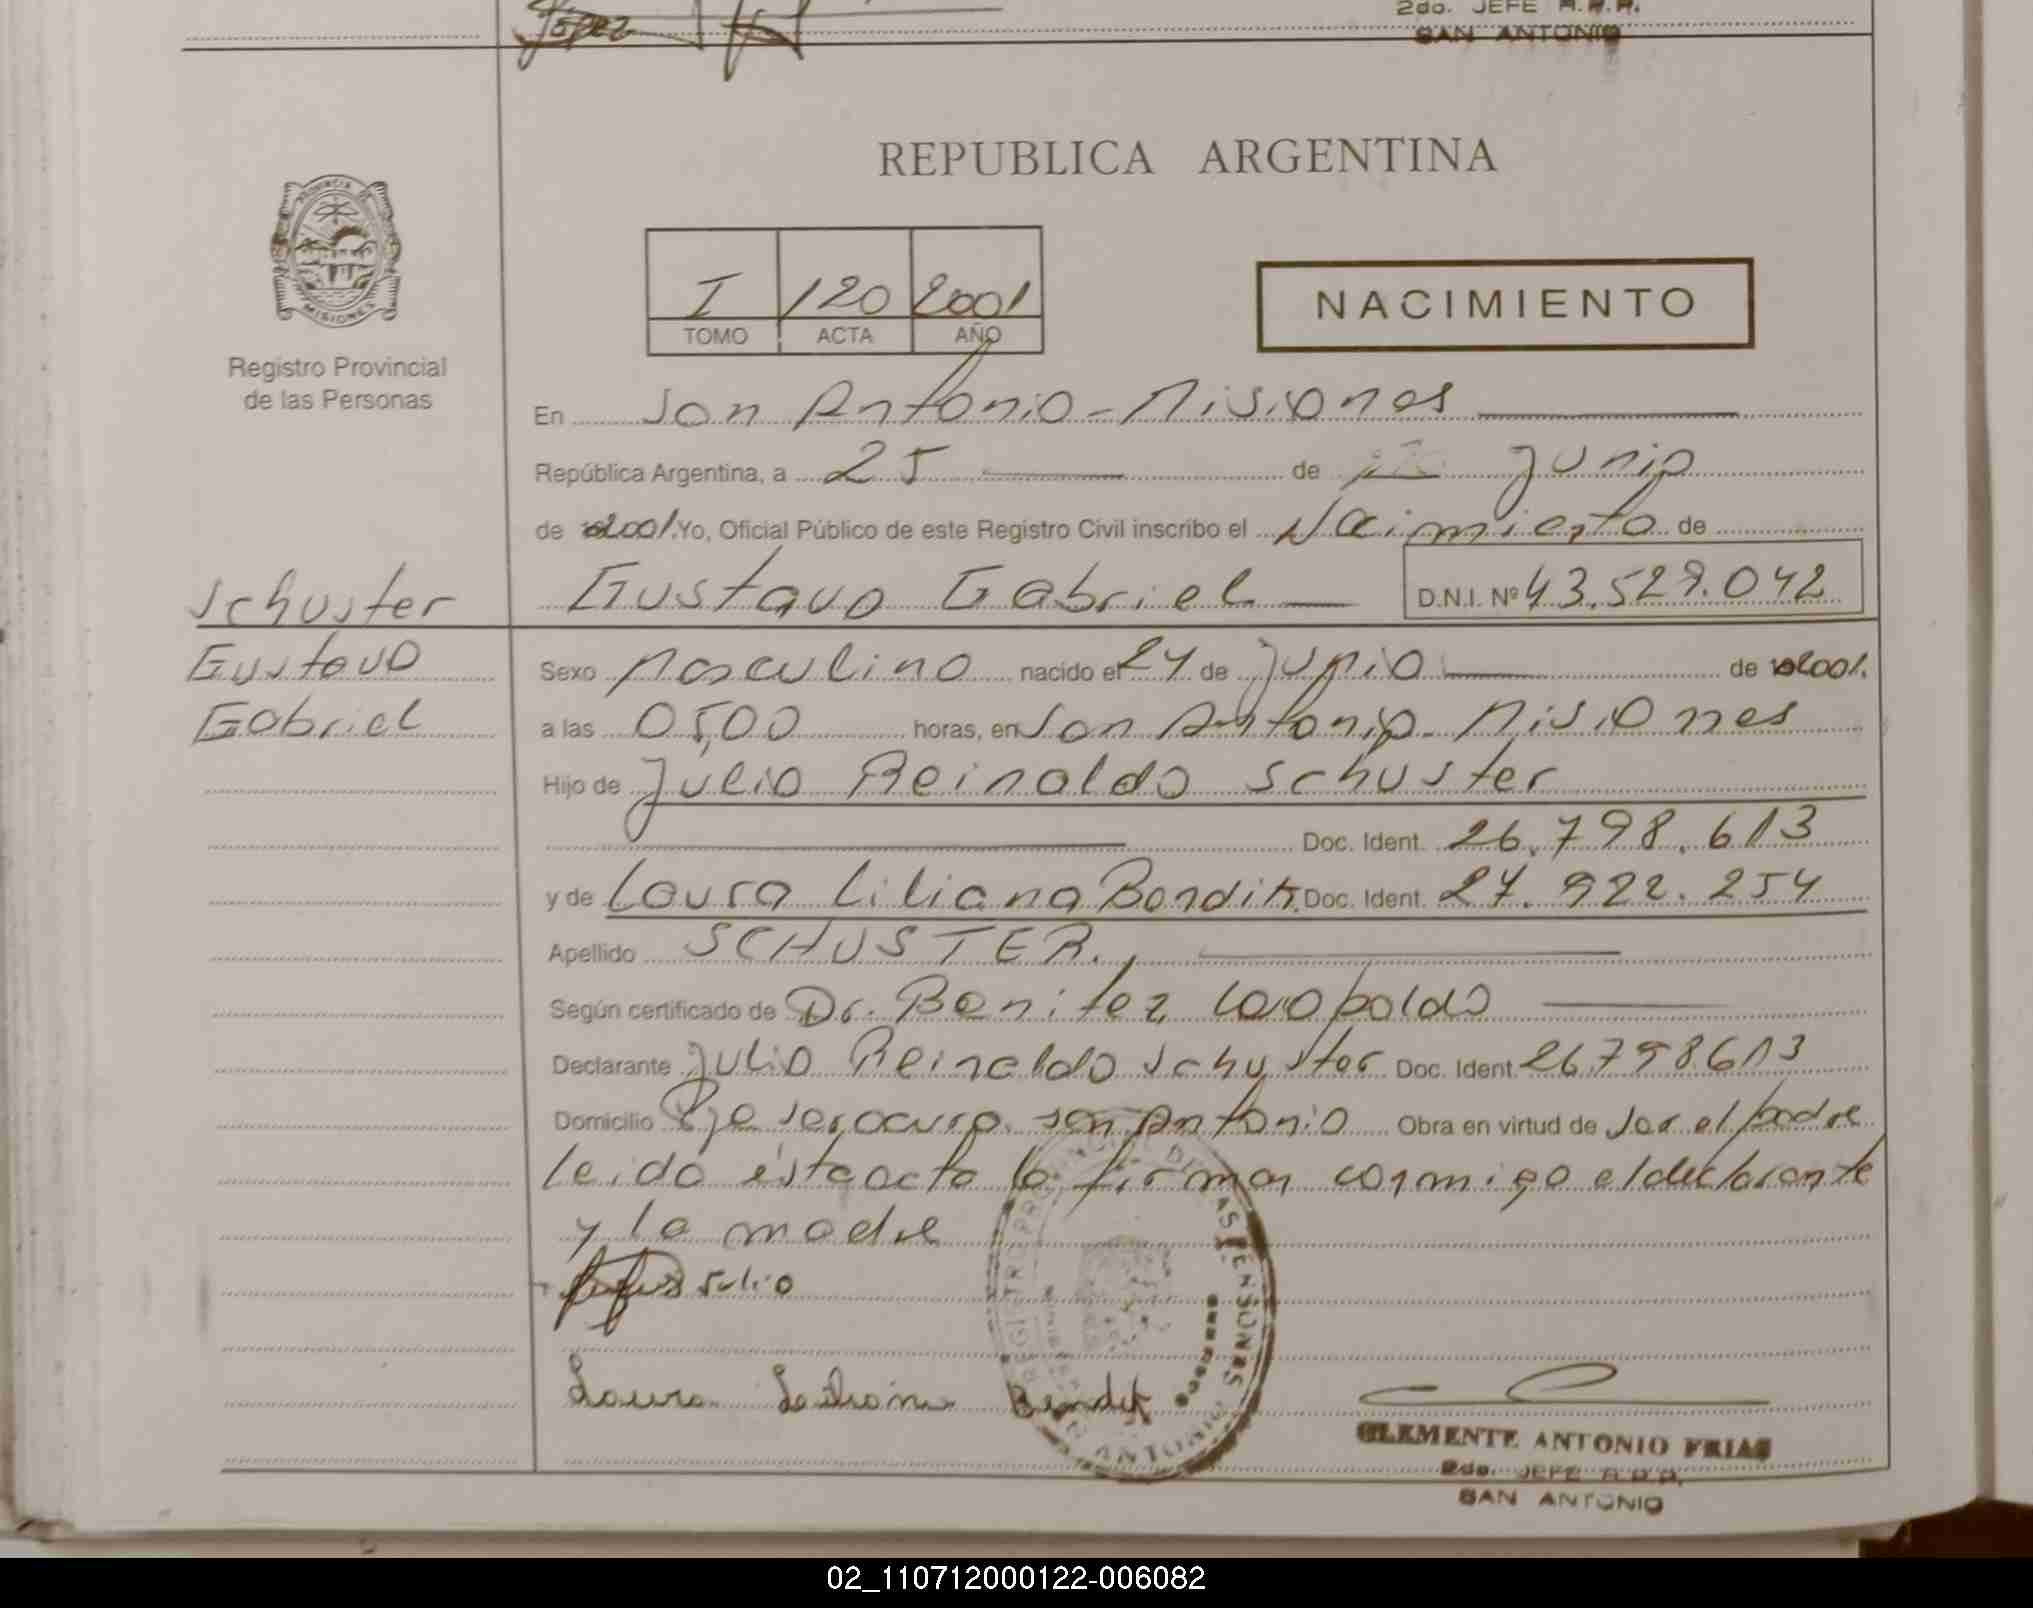 López
2do. JEFE R.P.P.
SAN ANTONIO
REPUBLICA ARGENTINA
PROVINCIA DE
MISIONES
Registro Provincial
de las Personas
I 120 2001
TOMO ACTA AÑO
NACIMIENTO
En San Antonio - Misiones
República Argentina, a 25 de Junio
de 2001. Yo, Oficial Público de este Registro Civil inscribo el Nacimiento de
Schuster
Gustavo
Gabriel
Gustavo Gabriel D.N.I. Nº 43.529.042
Sexo Masculino nacido el 24 de Junio de 2001.
a las 05,00 horas, en San Antonio - Misiones
Hijo de Julio Reinaldo Schuster
Doc. Ident. 26.798.613
y de Laura Liliana Bandit. Doc. Ident. 27.922.254
Apellido SCHUSTER.
Según certificado de Dr. Benitez Leopoldo
Declarante Julio Reinaldo Schuster Doc. Ident. 26798613
Domicilio San Antonio Obra en virtud de Ser el padre
leida ésta acta la firman conmigo el declarante
y la madre
Julio
Laura Liliana
REGISTRO PROVINCIAL DE LAS PERSONAS
SAN ANTONIO
CLEMENTE ANTONIO FRIAS
2do. JEFE R.P.P.
SAN ANTONIO
02_110712000122-006082